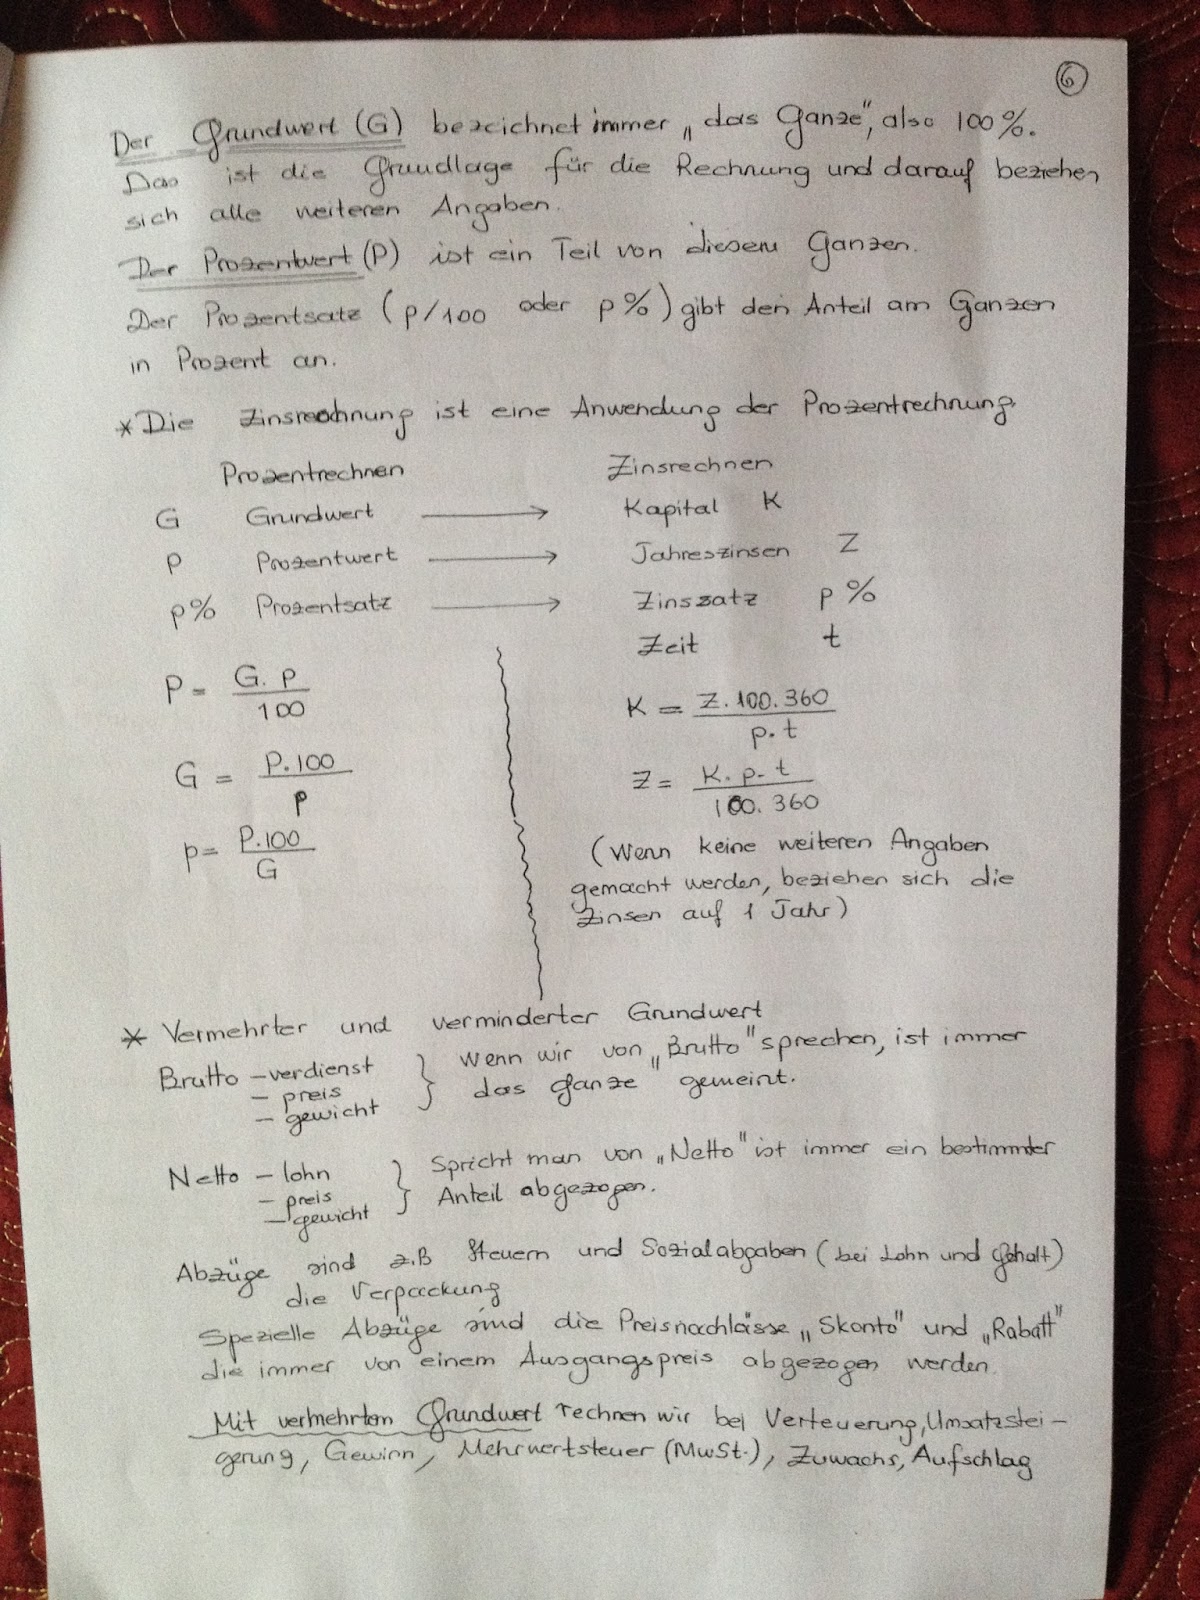 6
Der Grundwert (G) bezeichnet immer „das Ganze", also 100%.
Das ist die Grundlage für die Rechnung und darauf beziehen
sich alle weiteren Angaben.
Der Prozentwert (P) ist ein Teil von diesem Ganzen.
Der Prozentsatz (p/100 oder p%) gibt den Anteil am Ganzen
in Prozent an.
* Die Zinsrechnung ist eine Anwendung der Prozentrechnung.
Prozentrechnen Zinsrechnen
G Grundwert → Kapital K
P Prozentwert → Jahreszinsen Z
p% Prozentsatz → Zinssatz p%
Zeit t
P = G. p / 100
G = P.100 / p
p = P.100 / G
K = Z.100.360 / p.t
Z = K.p.t / 100.360
(Wenn keine weiteren Angaben
gemacht werden, beziehen sich die
Zinsen auf 1 Jahr)
* Vermehrter und verminderter Grundwert
Brutto – verdienst
– preis
– gewicht
} Wenn wir von „Brutto" sprechen, ist immer
das Ganze" gemeint.
Netto – lohn
– preis
– gewicht
} Spricht man von „Netto" ist immer ein bestimmter
Anteil abgezogen.
Abzüge sind z.B Steuern und Sozialabgaben (bei Lohn und Gehalt)
die Verpackung
Spezielle Abzüge sind die Preisnachlässe „Skonto" und „Rabatt"
die immer von einem Ausgangspreis abgezogen werden.
Mit vermehrtem Grundwert rechnen wir bei Verteuerung, Umsatzstei–
gerung, Gewinn, Mehrwertsteuer (MwSt.), Zuwachs, Aufschlag